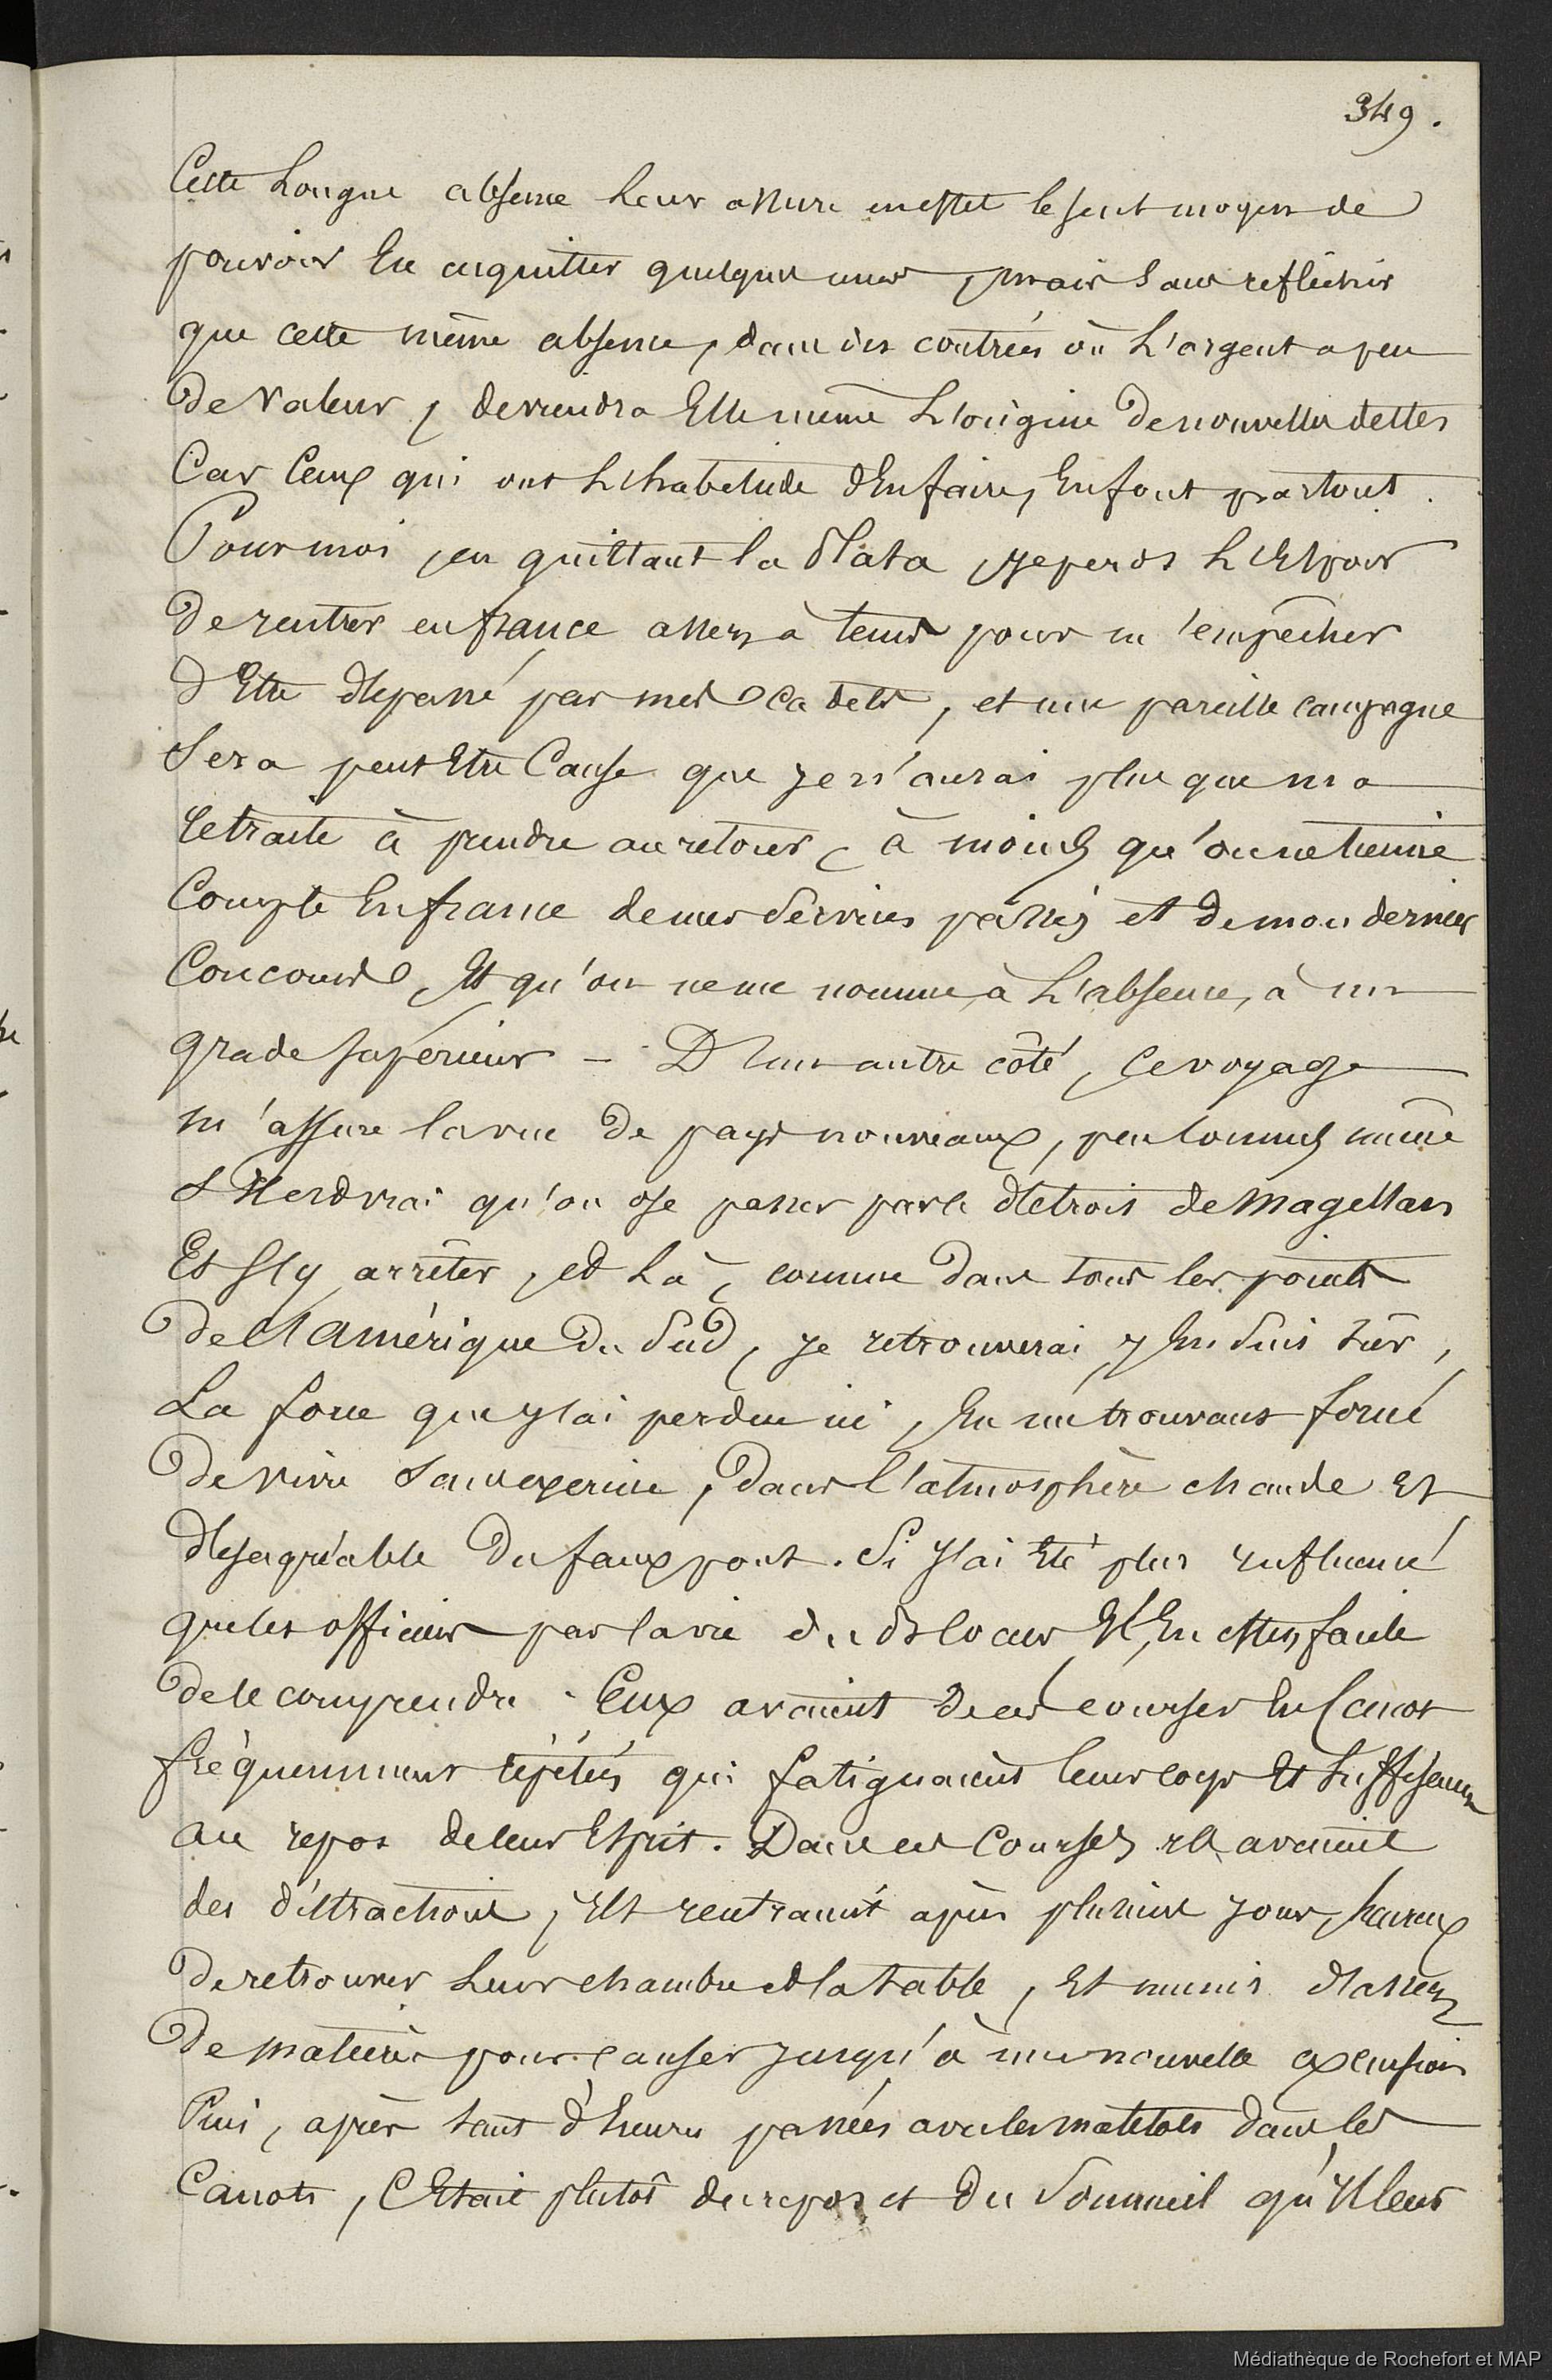 349.
Cette longue absence leur assure en effet le seul moyen de
pouvoir en acquitter quelques unes, mais sans refléchir
que cette même absence, dans des contrées où l'argent a peu
de valeur, deviendra elle même l'origine de nouvelles dettes
Car ceux qui ont l'habitude d'en faire, en font partout.
Pour moi, en quittant la Plata, je perds l'espoir
de rentrer en france assez à tems pour m'empêcher
d'être dépassé par mes cadets, et une pareille campagne
sera peut être cause que je n'aurai plus que ma
retraite à prendre au retour, à moins qu'on ne tienne
Compte en france de mes services passés et de mon dernier
Concours, et qu'on ne me nomme, à l'absence, à un
grade supérieur – D'un autre côté, ce voyage
m'assure la vue de pays nouveaux, peu connus même
s'il est vrai qu'on ose passer par le détroit de Magellan
Et s'y arrêter, et là, comme dans tous les points
de l'Amérique du Sud, je retrouverai, j'en suis sûr,
La force que j'ai perdue ici, en me trouvant forcé
de vivre sans exercice, dans l'atmosphère chaude et
désagréable du faux pont. Si j'ai été plus influencé
que les officiers par la vie du blocus il en est facile
de le comprendre. Eux avaient de ces courses en canot
fréquemment répétées qui fatiguaient leur corps et suffisaient
au repos de leur esprit. Dans ces courses ils avaient
des distractions, ils rentraient après plusieurs jours, heureux
de retrouver leur chambre et la table, et munis d'assez
de matières pour causer jusqu'à une nouvelle excursion
Puis, après tant d'heures passées avec les matelots dans les
Canots, c'était plutôt du repos et du sommeil qu'il leur
Médiathèque de Rochefort et MAP